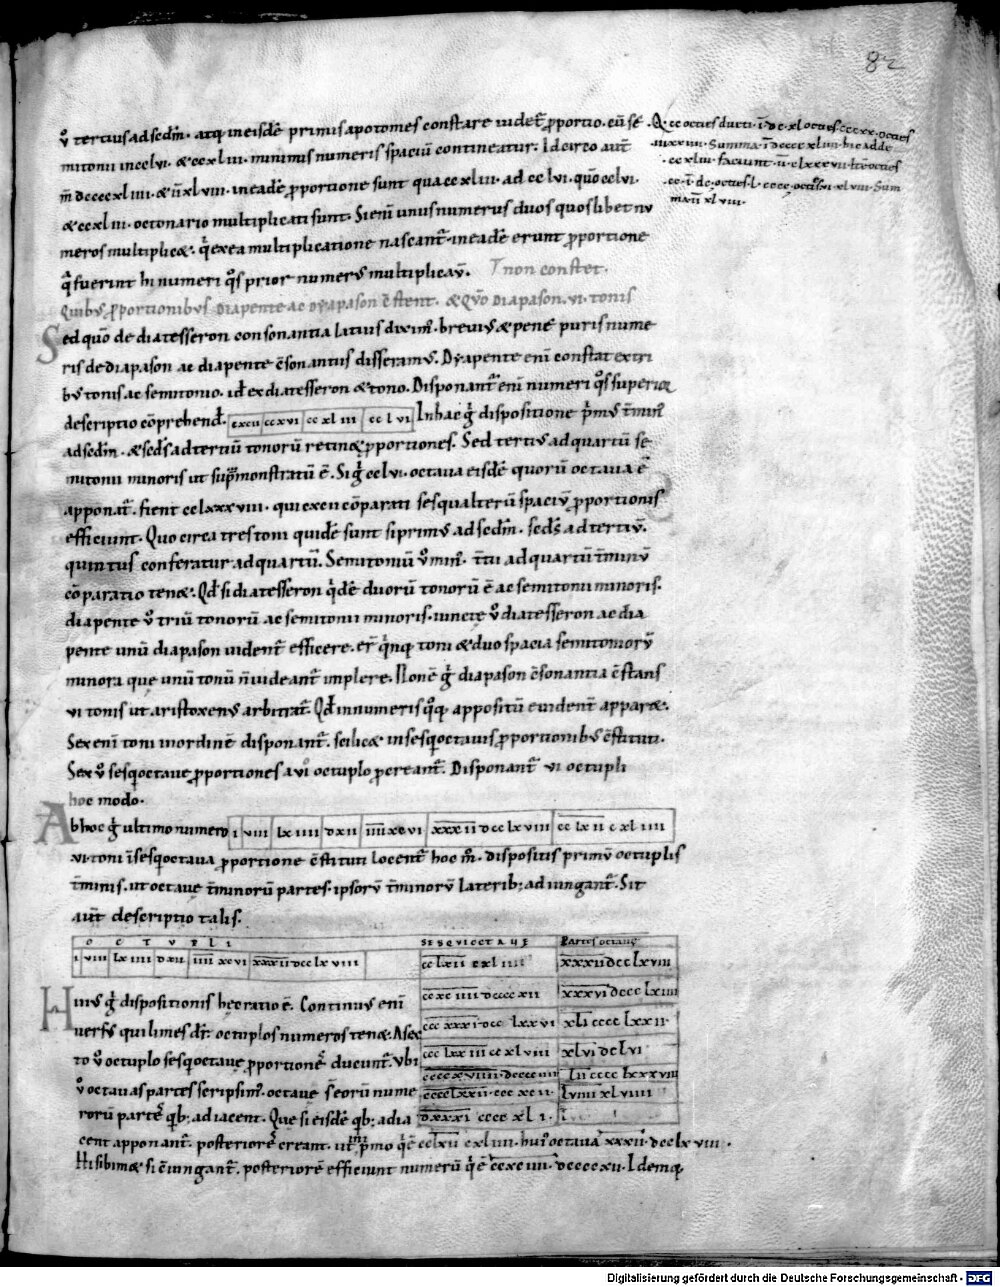 82
ṽ tertius ad scdm̄. atq; in eisdē primis apotomes constare uidet᷑ ꝓportio. cū sē
mitonii in cclvi. & ccxliii. minimis numeris spaciū contineatur. Idcirco aut̄
m̄ dccccxliiii. & īī xlviii. in eadē ꝓportione sunt qua ccxliii. ad cclvi. quō cclvi.
& ccxliii. octonario multiplicati sunt. Si enī unus numerus duos quoslibet nu
meros multiplicet. q̄ ex ea multiplicatione nascant᷑. in eadē erunt ꝓportione
q̄ fuerint hi numeri q̊s prior numerus multiplicau̅.
Q. cc octies ducti. ī dc. xl octies cccxx. octies
iii xxiiii. Summa. ī dcccc xliiii. hic adde
ccxliii. faciunt. īī. clxxxvii. Itē octies
cc. ī. dc. octies. l. cccc. octies. vi. xlviii. Sum
ma īī xlviii.
Quibus ꝓportionibus diapente ac dyapason c̄stent. & quō diapason. vi. tonis
non constet.
Sed quō de diatesseron consonantia latius dixim᷒. brevius & pene puris nume
ris de diapason ac diapente c̄sonantiis disseramus. Dyapente enī constat ex tri
bus tonis ac semitonio. id̄ ex diatesseron & tono. Disponant᷑ enī numeri q̊s superior
descriptio cōprehend̄. cxcii ccxvi ccxliii cclvi In hac g̊ dispositione p̄mus t̄min᷒
ad scdm̄. & scds̄ ad tertiū tonorū retinet ꝓportiones. Sed tertius ad quartū se
mitonii minoris ut sup̄ monstratū ē. Si g̊ cclvi. octaua eisdē quorū octaua ē
apponat᷑. fient cclxxxviii. qui cxcii cōparati sesqualterū spaciū ꝓportionis
efficiunt. Quocirca tres toni quidē sunt si primus ad scdm̄. scds̄ ad tertiū.
quintus conferatur ad quartū. Semitoniū ṽ min᷒. t̄tii ad quartū t̄minū
cōparatio tenet. Qd̄ si diatesseron q̄dē duorū tonorū ē ac semitonii minoris.
diapente ṽ triū tonorū ac semitonii minoris. iuncte ṽ diatesseron ac dia
pente unū diapason uident᷑ efficere. er̄ q̄nq; toni & duo spacia semitoniorū
minora que unū tonū n̄ uideant᷑ implere. Non ē g̊ diapason c̄sonantia c̄stans
vi tonis ut aristoxenus arbitrat᷑. Qd̄ in numeris q̊q; appositū euident᷑ apparet.
Sex enī toni in ordinē disponant᷑. scilicet in sesq̄octauis ꝓportionibus c̄stituti.
Sex ṽ sesq̄octaue ꝓportiones a vi octuplo ꝓcreant᷑. Disponant᷑ vi octupli
hoc modo.
Ab hoc g̊ ultimo numero i viii lxiiii dxii īīīī xcvi x̄x̄x̄īī dcclxviii c̄c̄l̄x̄īī cxliiii
.vi. toni ī sesq̄octaua ꝓportione c̄stituti locent᷑ hoc m̊. dispositis primū octuplis
t̄minis. ut octaue t̄minorū partes. ipsorū t̄minorū laterib; adiungant᷑. Sit
aut̄ descriptio talis.
OCTVPLI SESQVIOCTAVE Partes octauę
i viii lxiiii dxii īīīī xcvi x̄x̄x̄īī dcclxviii c̄c̄l̄x̄īī cxliiii x̄x̄x̄īī dcclxviii
ccxciiii dccccxii xxxvi dccclxiiii
cccxxxi dcclxxvi xli cccclxxii
ccclxxiii ccxlviii xlvi dclvi
ccccxviiii dcccciiii lii cccclxxxviii
cccclxxii cccxcii lviiii xlviiii
dxxxi ccccxli. i
Huius g̊ dispositionis hęc ratio ē. Continuus enī
uersus qui limes dr̄. octuplos numeros tenet. A sex
to ṽ octuplo sesq̄octauę ꝓportionē ducunt᷑. Vbi
ṽ octauas partes scripsim᷒. octauę s̄ eorū nume
rorū partē q̄b; adiacent. Que si eisdē q̄b; adia
cent apponant᷑. posteriorē creant. ut p̄mo q̄ ē cclxii cxliiii. hui᷒ octaua xxxii. dcclxviii.
Hi sibimet si c̄iungant᷑. posteriorē efficiunt numerū q̄ ē ccxciiii. dccccxii. Idemq;
Digitalisierung gefördert durch die Deutsche Forschungsgemeinschaft - DFG